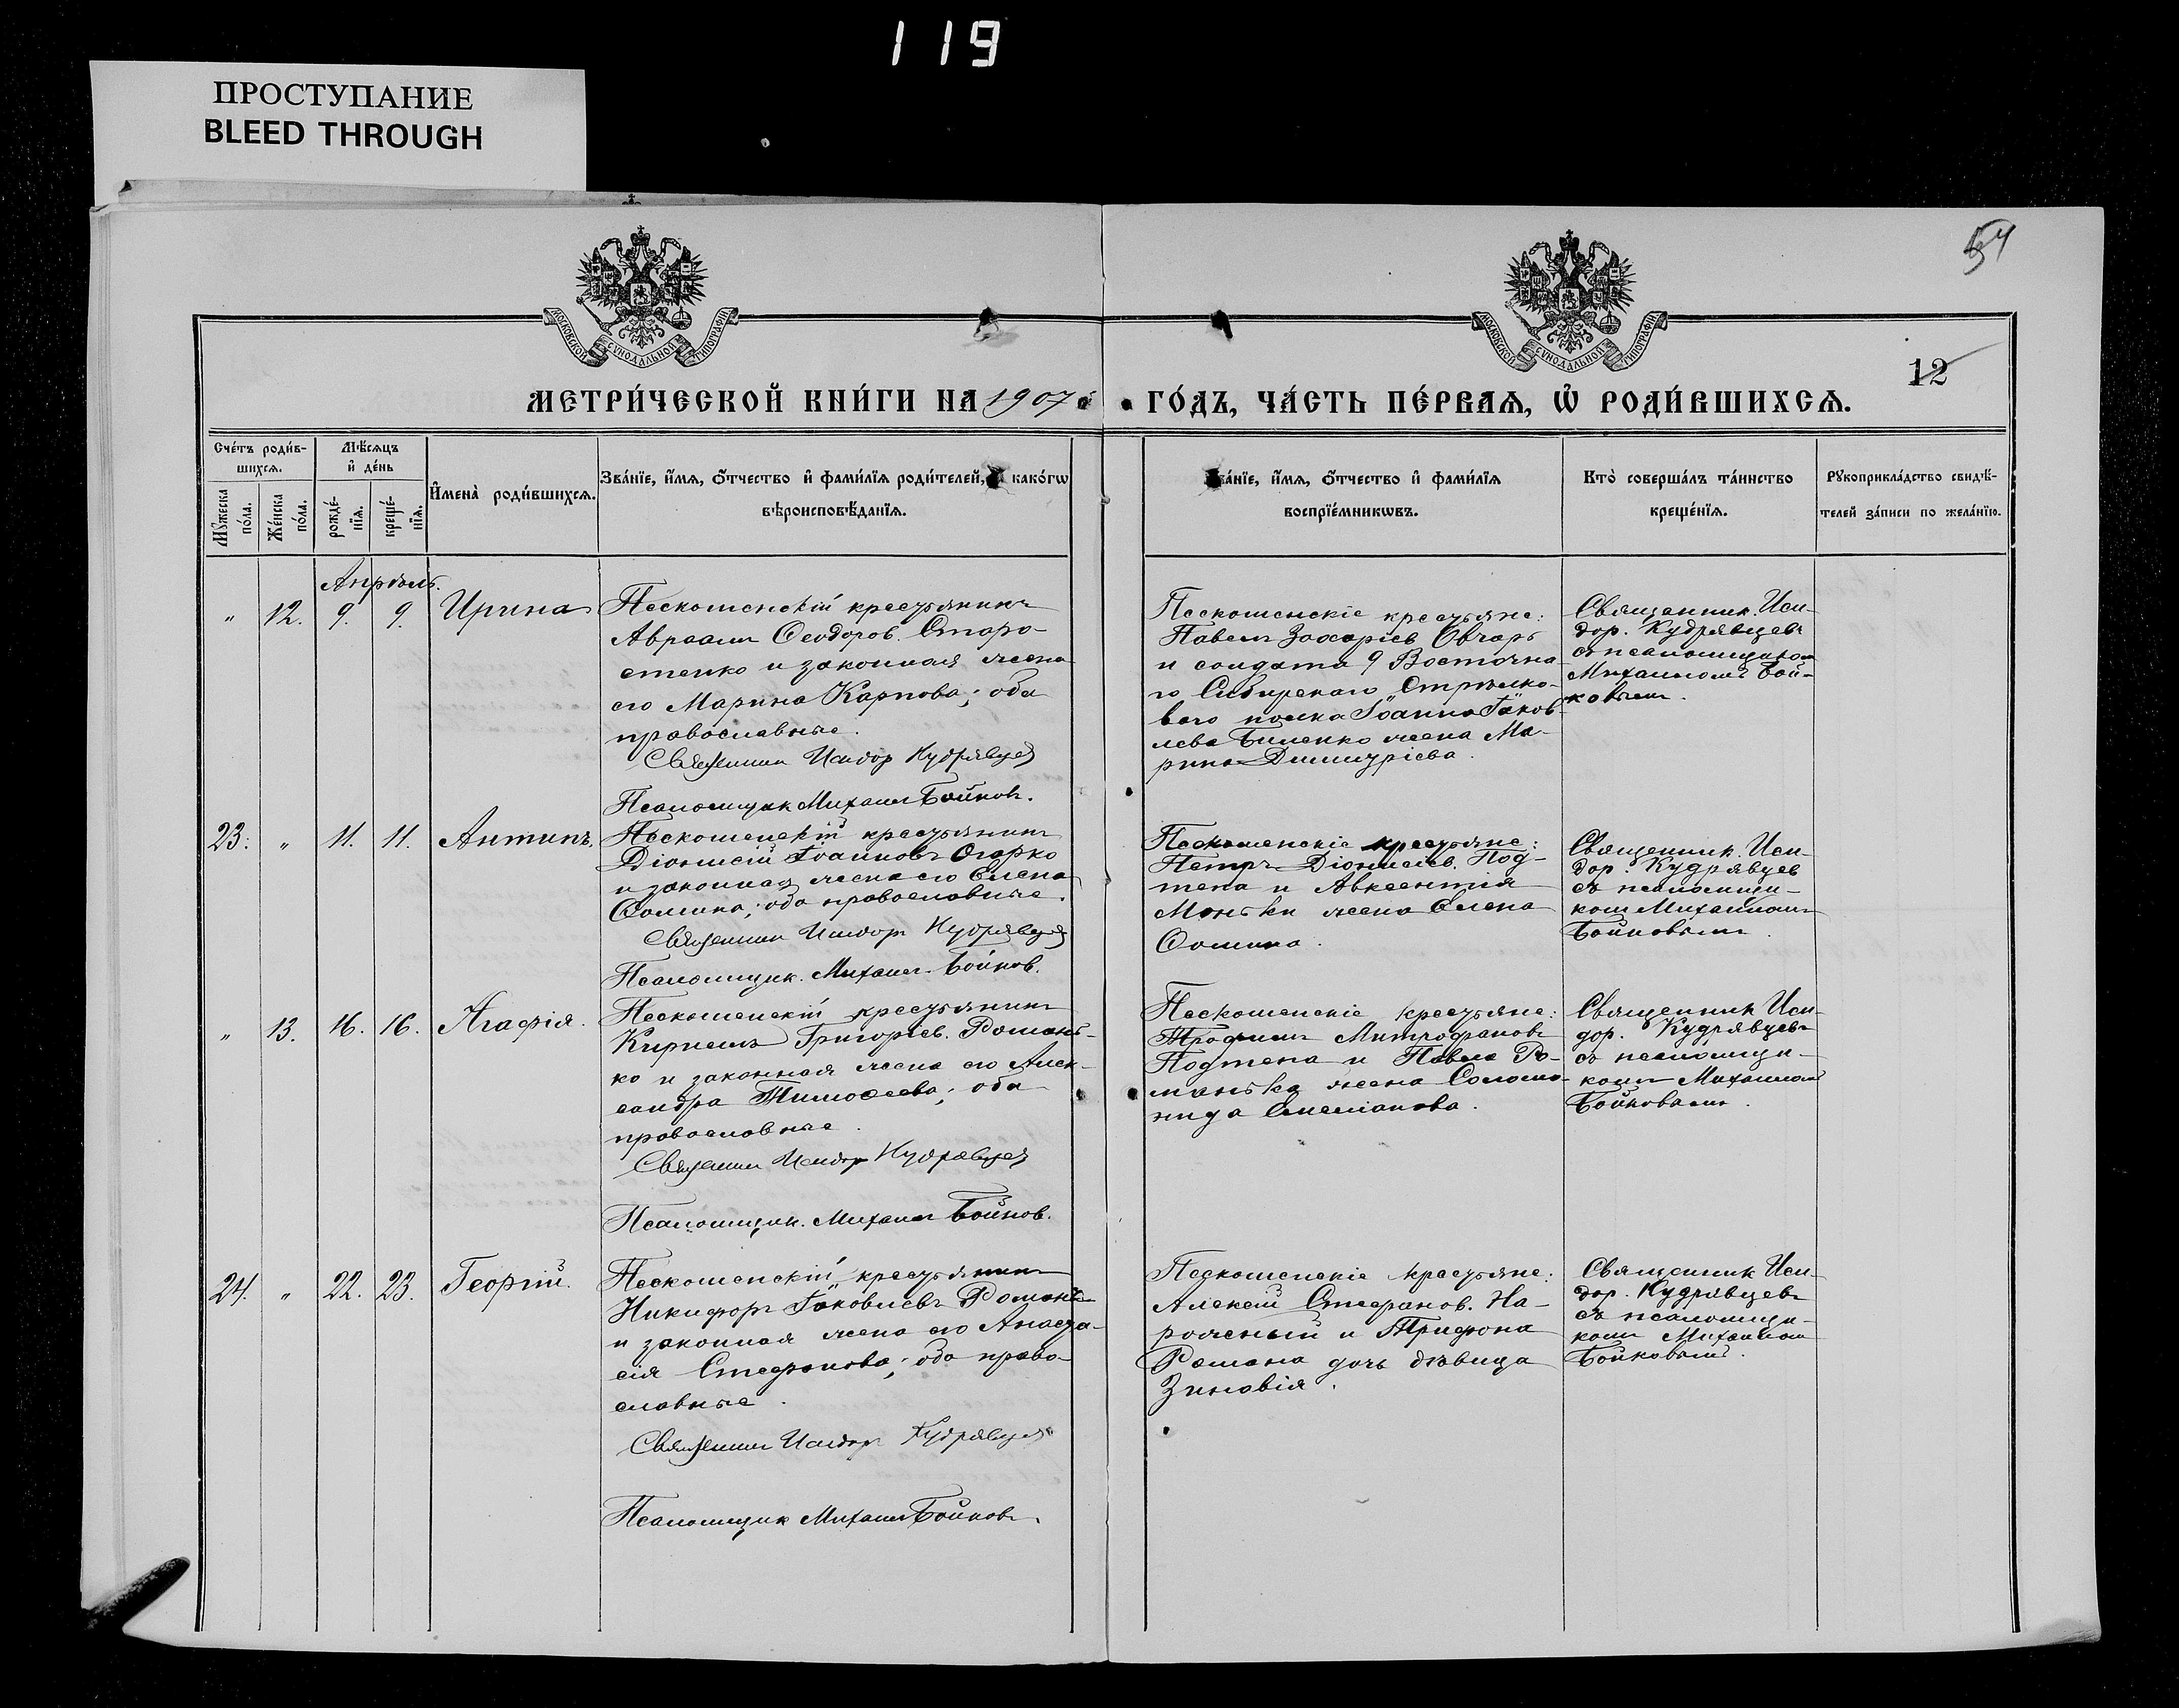 119
ПРОСТУПАНИЕ
BLEED THROUGH
54
12
МОСКОВСКОЙ СѴНОДАЛЬНОЙ ТИПОГРАФІИ
МОСКОВСКОЙ СѴНОДАЛЬНОЙ ТИПОГРАФІИ
МЕТРИ́ЧЕСКОЙ КНИ́ГИ НА 1907 ГО́ДЪ, ЧА́СТЬ ПЕ́РВАѦ, Ѡ҆ РОДИ́ВШИХСѦ.
Сче́тъ роди́в-
шихсѧ.
Мꙋ́жеска по́ла.
Же́нска по́ла.
Мѣ́сѧцъ
и҆ де́нь
рожде́-
нїѧ.
креще́-
нїѧ.
И҆мена̀ роди́вшихсѧ.
Зва́нїе, и҆́мѧ, ѻ҆́тчество и҆ фами́лїѧ роди́телей, како́гѡ
вѣроисповѣ́данїѧ.
Зва́нїе, и҆́мѧ, ѻ҆́тчество и҆ фами́лїѧ
воспрїе́мникѡвъ.
Кто̀ соверша́лъ та́инство
креще́нїѧ.
Рꙋкоприкла́дство свидѣ́-
телей за́писи по жела́нїю.
Апрѣль.
" 12. 9. 9. Ирина
Пескошенскій крестьянинъ
Авраам Ѳеодоров. Старо-
стенко и законная жена
его Марина Карпова; оба
православные.
Священник Исидор Кудрявцев
Псаломщик Михаил Бойков.
Пескошенскіе крестьяне:
Павел Захаріев Овчарь
и солдата 9 Восточна-
го Сибирскаго Стрѣлко-
ваго полка Іоанна Іаков-
лева Биленко жена Ма-
рина Димитріева.
Священник Иси-
дор. Кудрявцевъ
съ псаломщиком
Михаиломъ Бой-
ковым.
23. " 11. 11. Антипъ.
Пескошенскій крестьянинъ
Діонисій Іоанновъ Огарко
и законная жена его Елена
Ѳомина; оба православные.
Священник Исидор Кудрявцев
Псаломщик. Михаил Бойков.
Пескошенскіе крестьяне:
Петръ Діонисіев. Под-
тепа и Авксентія
Моньки жена Елена
Ѳомина.
Священник. Иси-
дор. Кудрявцев
съ псаломщи-
ком Михаилом
Бойковым.
" 13. 16. 16. Агафія.
Пескошенскій крестьянинъ
Кирилъ Григоріев. Романь-
ко и законная жена его Алек-
сандра Тимоѳеева; оба
православные.
Священник Исидор Кудрявцев
Псаломщик. Михаил Бойков.
Пескошенскіе крестьяне:
Трофим Митрофанов
Подтепа и Павла Ро-
манька жена Соломо-
нида Емеліанова.
Священник Иси-
дор. Кудрявцевъ
съ псаломщи-
ком Михаилом
Бойковым.
24. " 22. 23. Георгій.
Пескошенскій крестьянин
Никифоръ Іаковлевъ Роман
и законная жена его Анаста-
сія Стефанова; оба право-
славные.
Священник Исидор Кудрявцев
Псаломщик Михаил Бойковъ.
Пескошенскіе крестьяне:
Алексій Стефанов. На-
рожный и Трифона
Романа дочь дѣвица
Зиновія.
Священник Иси-
дор. Кудрявцевъ
съ псаломщи-
ком Михаилом
Бойковым.